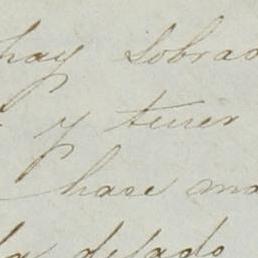 hay sobrad
y tener
hase ma
ha dejado